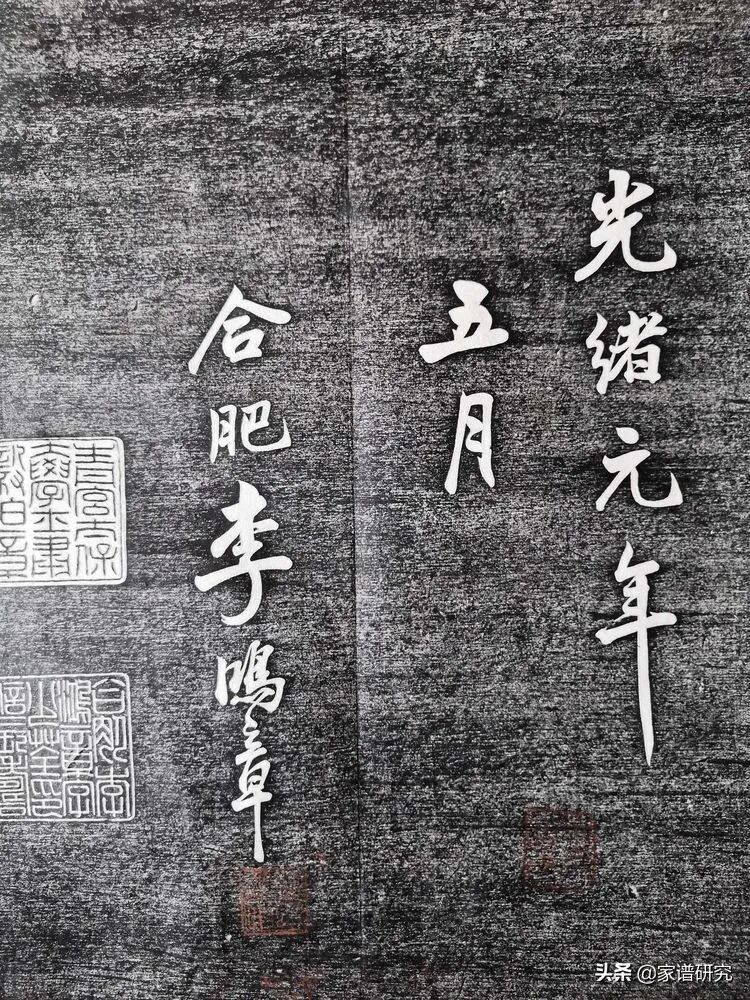 光緒元年
五月
合肥李鴻章
头条 @家谱研究